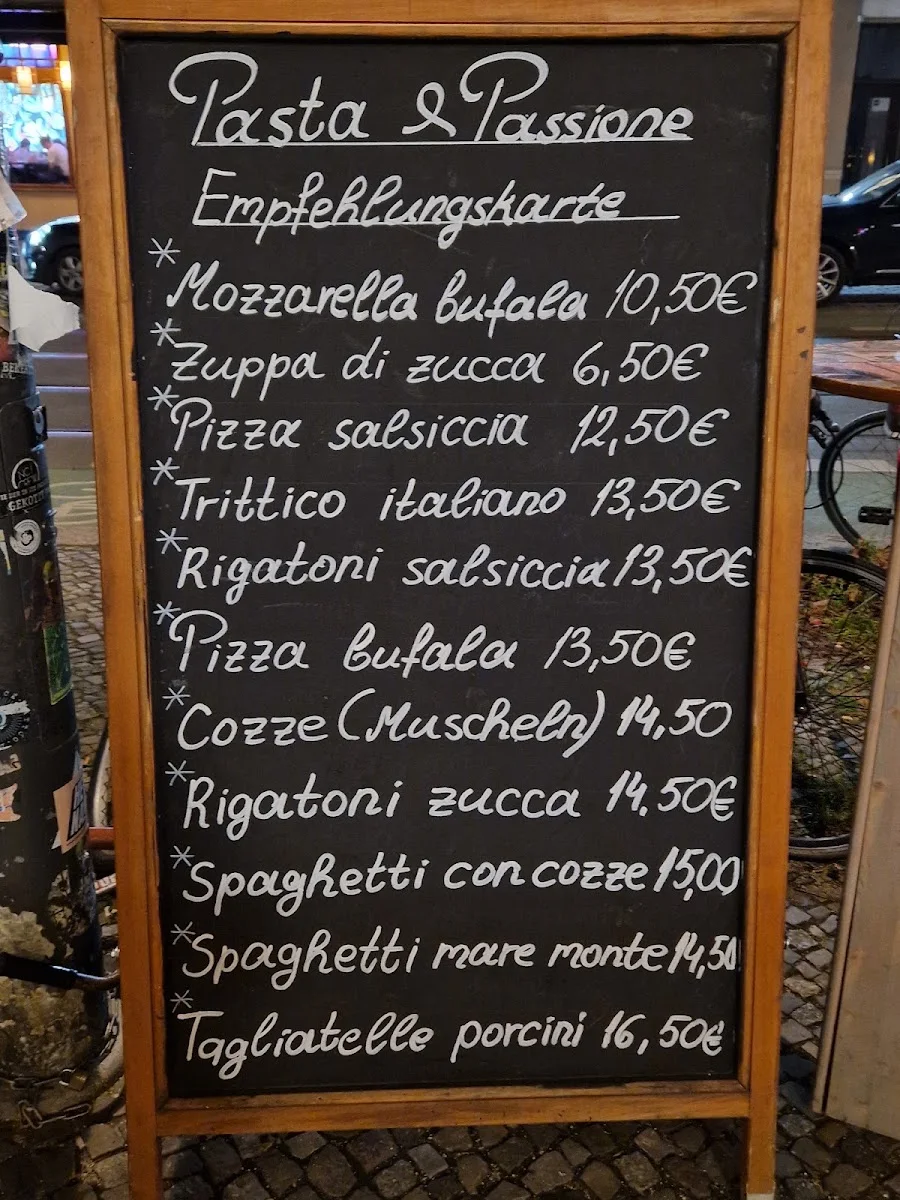 Pasta & Passione
Empfehlungskarte
* Mozzarella bufala 10,50€
* Zuppa di zucca 6,50€
* Pizza salsiccia 12,50€
* Trittico italiano 13,50€
* Rigatoni salsiccia 13,50€
* Pizza bufala 13,50€
* Cozze (Muscheln) 14,50
* Rigatoni zucca 14,50€
* Spaghetti con cozze 15,00
* Spaghetti mare monte 14,50
* Tagliatelle porcini 16,50€